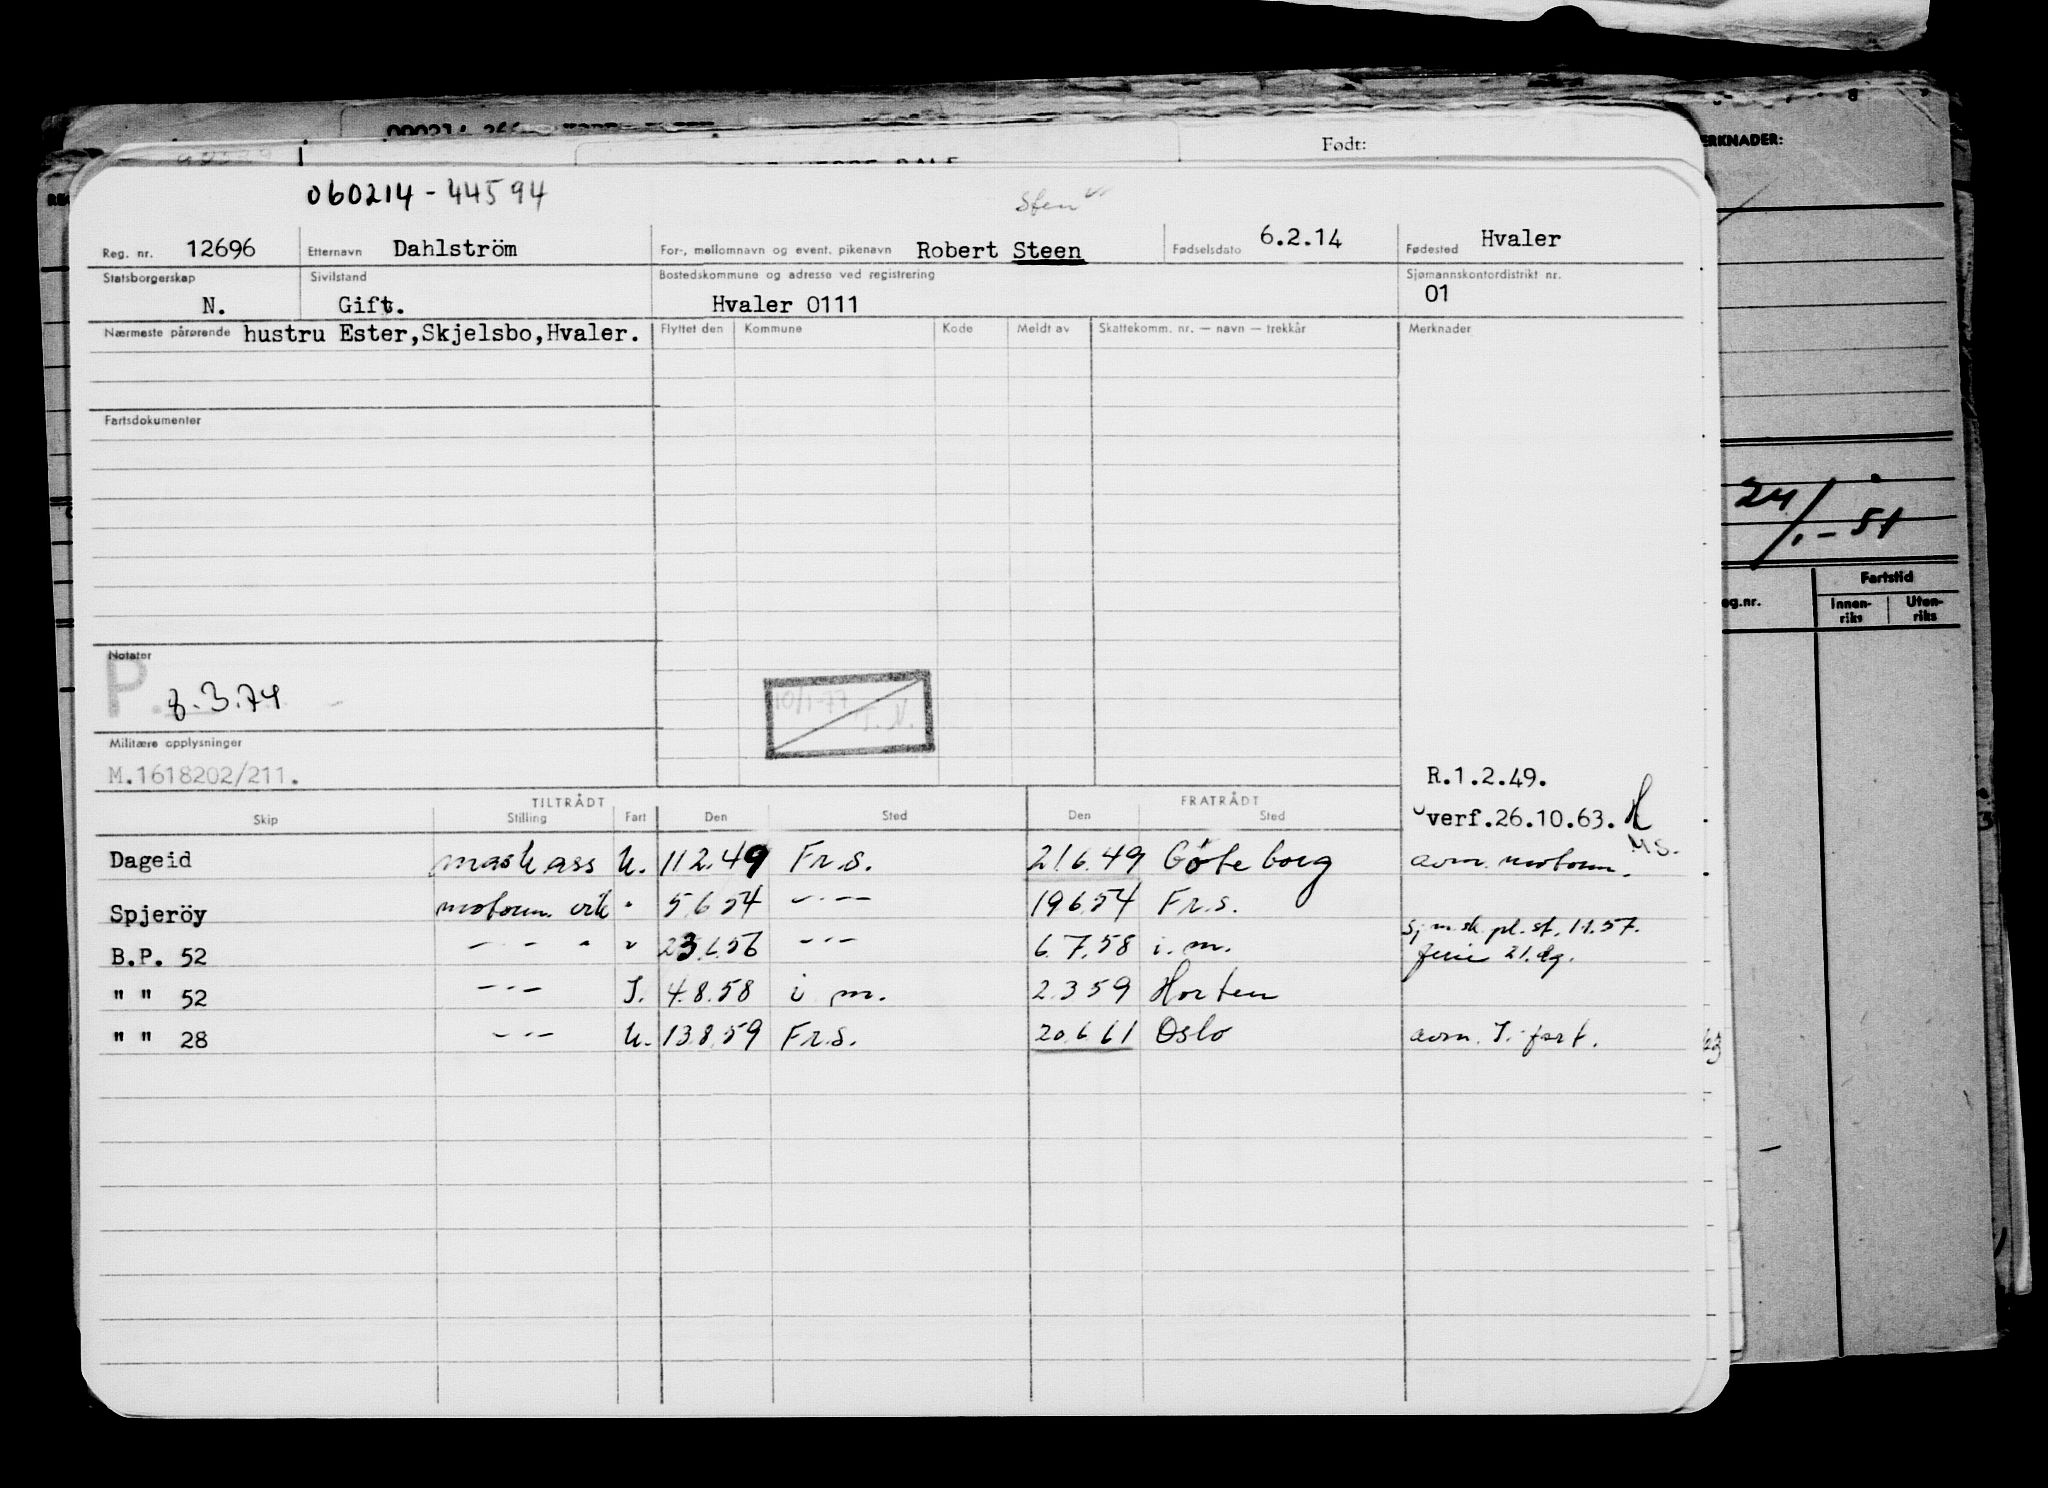 Født:
ERKNADER:
060214-44594
Sten
Reg. nr. 12696 Etternavn Dahlström For-, mellomnavn og event. pikenavn Robert Steen Fødselsdato 6.2.14 Fødested Hvaler
Statsborgerskap Sivilstand Bostedskommune og adresse ved registrering Sjømannskontordistrikt nr.
N. Gift. Hvaler 0111 01
Nærmeste pårørende hustru Ester,Skjelsbo,Hvaler. Flyttet den Kommune Kode Meldt av Skattekomm. nr. — navn — trekkår Merknader
Fartsdokumenter
24/1-51
Fartstid
eg.nr. Innen- Uten-
riks riks
Notater
P. 8.3.74
10/1-77
Militære opplysninger
M.1618202/211.
R.1.2.49.
TILTRÅDT FRATRÅDT
Skip Stilling Fart Den Sted Den Sted verf.26.10.63.
Dageid maskass U. 11 2.49 Fr.s. 21 6.49 Göteborg avm. motorm.
Spjeröy motorm. " 5.6 54 —"— 19 6.54 Fr.s.
sj.m.sk pl. st. 1.1.57.
B.P. 52 —"— " " 23.6.56 —"— 6.7.58 i.m. ferie 21.dg.
" " 52 —"— I. 4.8.58 i m. 2.3 59 Horten
" " 28 —"— U. 13.8.59 Fr.s. 20.6.61 Oslo avm. I. fart.